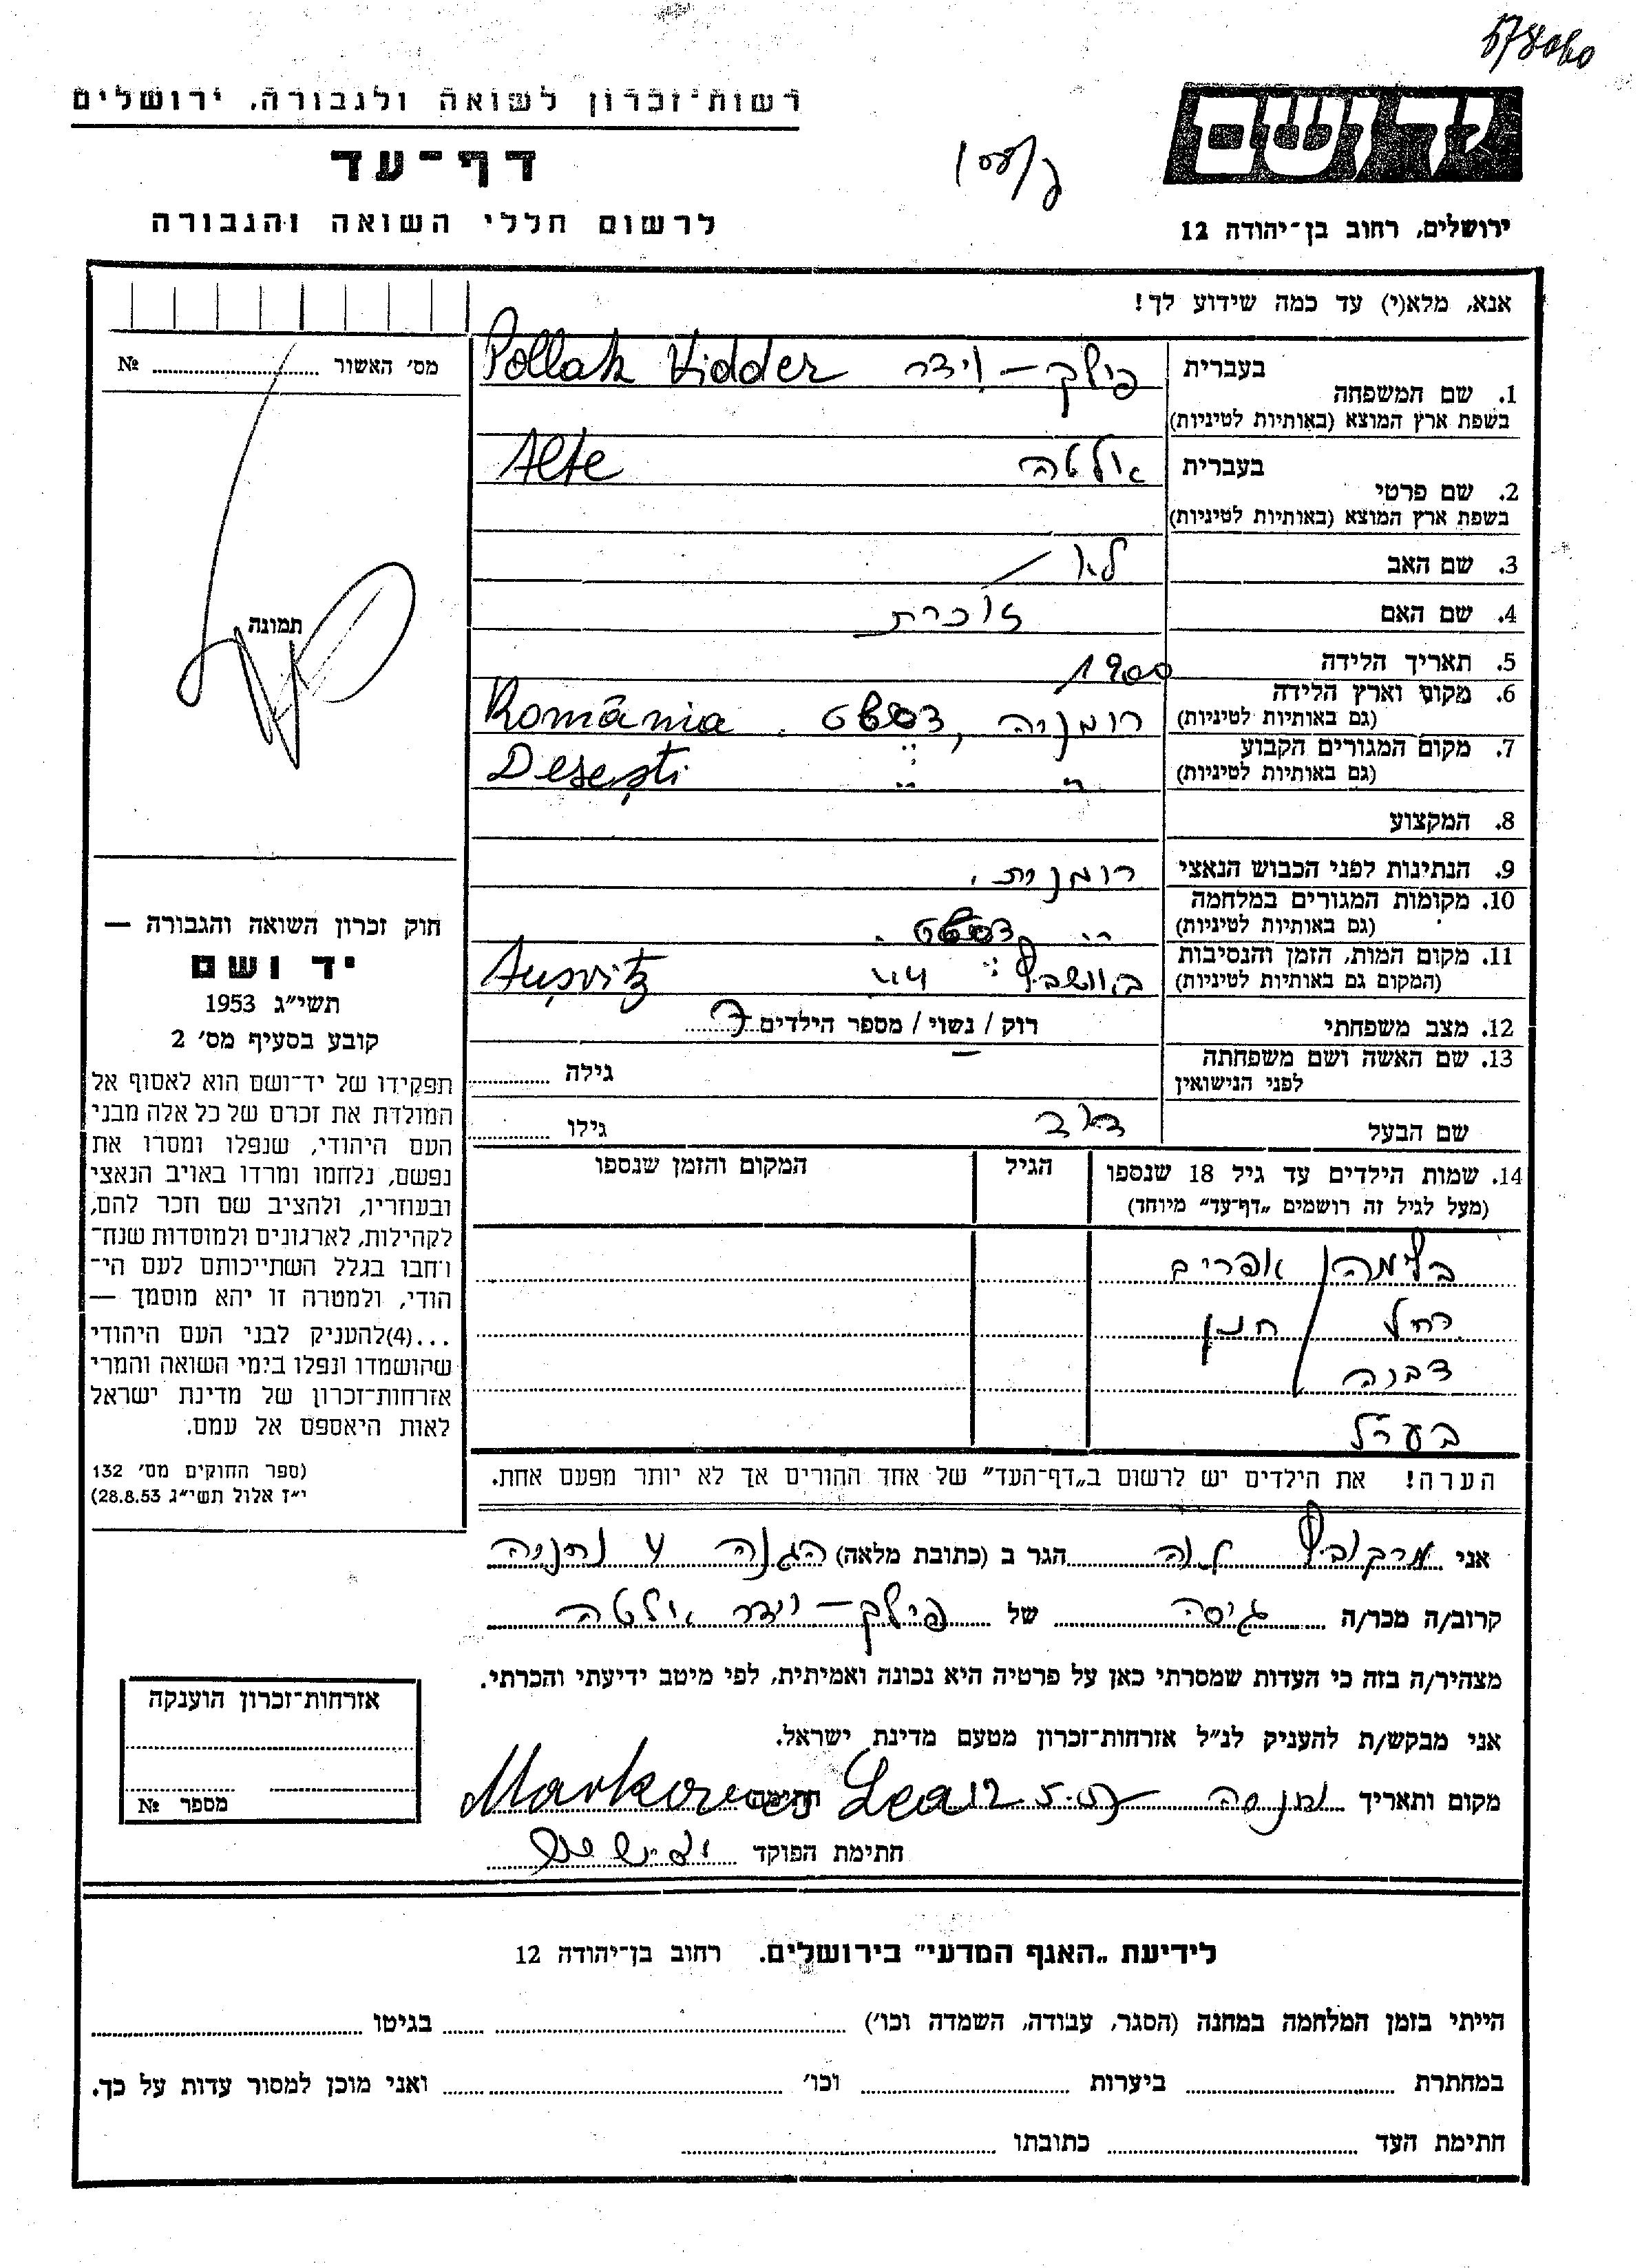 578060
רשות־זכרון לשואה ולגבורה, ירושלים
ידושם
דף־עד
לרשום חללי השואה והגבורה
ירושלים, רחוב בן־יהודה 12
אנא, מלא(י) עד כמה שידוע לך!
מס׳ האשור № ....................
תמונה
1. שם המשפחה בעברית פולק – וידר Pollak Vidder
בשפת ארץ המוצא (באותיות לטיניות)
2. שם פרטי בעברית אלטה Alte
בשפת ארץ המוצא (באותיות לטיניות)
3. שם האב לא
4. שם האם זוכרת
5. תאריך הלידה 1900
6. מקום וארץ הלידה רומניה, דסשט România
(גם באותיות לטיניות)
7. מקום המגורים הקבוע " " Desești
(גם באותיות לטיניות)
8. המקצוע
9. הנתינות לפני הכבוש הנאצי רומנית.
10. מקומות המגורים במלחמה דסשט.
(גם באותיות לטיניות)
11. מקום המות, הזמן והנסיבות 44 Aușvitz
(המקום גם באותיות לטיניות)
12. מצב משפחתי רוק / נשוי / מספר הילדים 7
13. שם האשה ושם משפחתה גילה
לפני הנישואין
שם הבעל דוב גילו
14. שמות הילדים עד גיל 18 שנספו הגיל המקום והזמן שנספו
(מעל לגיל זה רושמים „דף־עד” מיוחד)
אפרים
רחל חנן
דבורה
בערל
הערה! את הילדים יש לרשום ב„דף־העד” של אחד ההורים אך לא יותר מפעם אחת.
חוק זכרון השואה והגבורה —
יד ושם
תשי״ג 1953
קובע בסעיף מס׳ 2
תפקידו של יד־ושם הוא לאסוף אל
המולדת את זכרם של כל אלה מבני
העם היהודי, שנפלו ומסרו את
נפשם, נלחמו ומרדו באויב הנאצי
ובעוזריו, ולהציב שם וזכר להם,
לקהילות, לארגונים ולמוסדות שנח־
רחבו בגלל השתייכותם לעם הי־
הודי, ולמטרה זו יהא מוסמך —
...(4)להעניק לבני העם היהודי
שהושמדו ונפלו בימי השואה והמרי
אזרחות־זכרון של מדינת ישראל
לאות היאספם אל עמם.
(ספר החוקים מס׳ 132
י״ז אלול תשי״ג 28.8.53)
אני מרקוביץ לאה הגר ב (כתובת מלאה) הגנה 4 נתניה
קרוב/ה מכר/ה גיסה של פולק – וידר אלטה
מצהיר/ה בזה כי העדות שמסרתי כאן על פרטיה היא נכונה ואמיתית, לפי מיטב ידיעתי והכרתי.
אני מבקש/ת להעניק לנ״ל אזרחות־זכרון מטעם מדינת ישראל.
מקום ותאריך נתניה 12.5.57 חתימה Markovics Lea
חתימת הפוקד
אזרחות־זכרון הוענקה
מספר №
לידיעת „האגף המדעי” בירושלים. רחוב בן־יהודה 12
הייתי בזמן המלחמה במחנה (הסגר, עבודה, השמדה וכו׳) בגיטו
במחתרת ביערות וכו׳ ואני מוכן למסור עדות על כך.
חתימת העד כתובתו